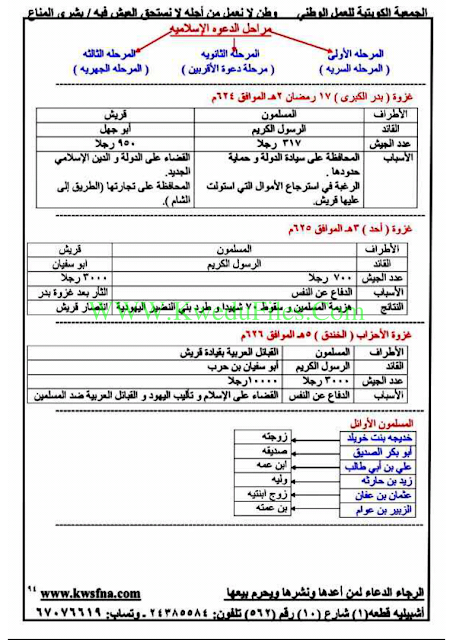 الجمعية الكويتية للعمل الوطني    وطن لا نعمل من أجله لا نستحق العيش فيه / بشرى المناع
مراحل الدعوه الإسلاميه
المرحله الأولى    المرحله الثانويه    المرحله الثالثه
( المرحله السريه )    ( مرحلة دعوة الأقربين )    ( المرحله الجهريه )
غزوة ( بدر الكبرى ) ١٧ رمضان ٢هـ الموافق ٦٢٤م
الأطراف    المسلمون    قريش
القائد    الرسول الكريم    أبو جهل
عدد الجيش    ٣١٧ رجلا    ٩٥٠ رجلا
الأسباب    المحافظة على سيادة الدولة و حماية    القضاء على الدولة و الدين الإسلامي
حدودها .    الجديد.
الرغبة في استرجاع الأموال التي استولت    المحافظة على تجارتها (الطريق إلى
عليها قريش.    الشام ).
غزوة ( أحد ) ٣هـ الموافق ٦٢٥م
الأطراف    المسلمون    قريش
القائد    الرسول الكريم    ابو سفيان
عدد الجيش    ٧٠٠ رجلا    ٣٠٠٠ رجلا
الأسباب    الدفاع عن النفس    الثأر بعد غزوة بدر
النتائج    هزيمة المسلمين و سقوط ٧٠ شهيدا و طرد بني النضير اليهودية    انتصار قريش
WWW.KweduFiles.Com
غزوة الأحزاب ( الخندق ) ٥هـ الموافق ٦٢٦م
الأطراف    المسلمون    القبائل العربية بقيادة قريش
القائد    الرسول الكريم    أبو سفيان بن حرب
عدد الجيش    ٣٠٠٠ رجلا    ١٠٠٠٠رجلا
الأسباب    الدفاع عن النفس    القضاء على الإسلام و تأليب اليهود و القبائل العربية ضد المسلمين
المسلمون الأوائل
خديجه بنت خويلد    زوجته
أبو بكر الصديق    صديقه
علي بن أبي طالب    ابن عمه
زيد بن حارثه    وليه
عثمان بن عفان    زوج ابنتيه
الزبير بن عوام    بن عمته
الرجاء الدعاء لمن أعدها ونشرها ويحرم بيعها    www.kwsfna.com    ٩٤
أشبيليه قطعه(١) شارع (١٠) رقم (٥٦٢) تلفون: ٢٤٣٨٥٥٨٤ - وتساب: ٦٧٠٧٦٦١٩